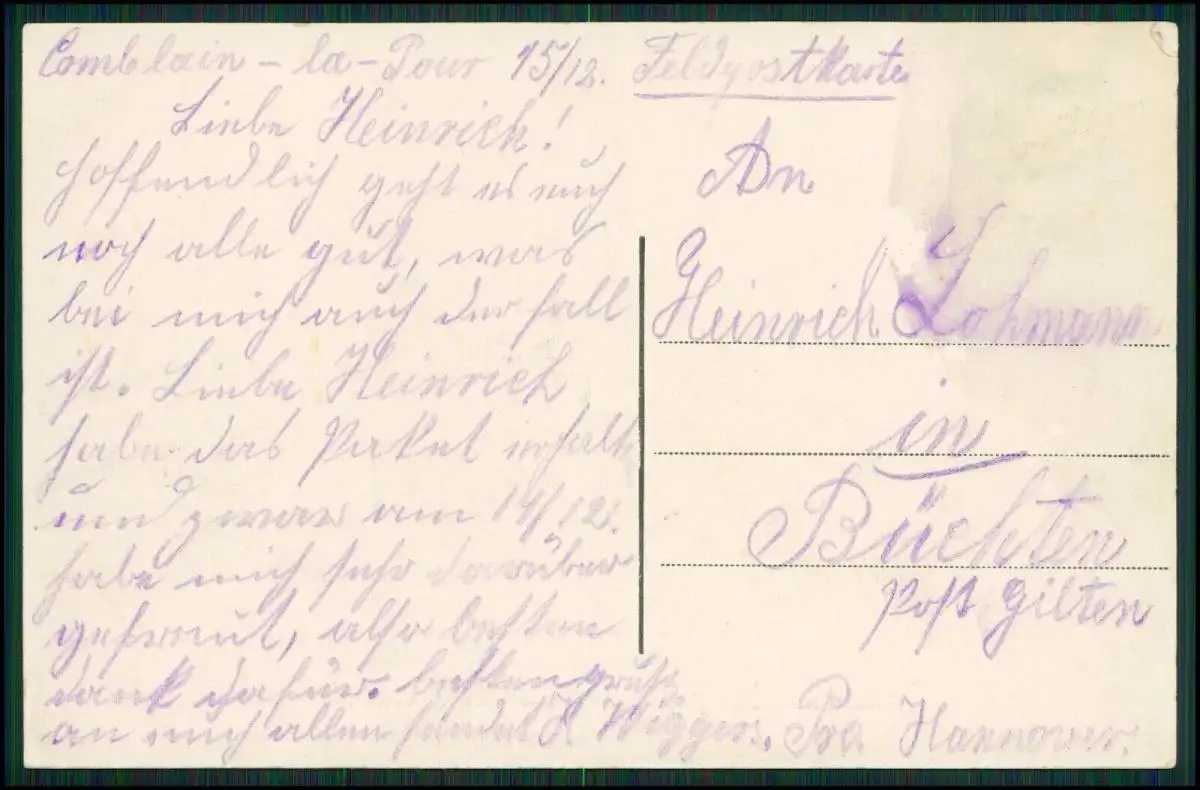 Comblain-la-Tour 15/12.
Liebe Heinrich!
hoffendlich geht es euch
noch alle gut, was
bei mich auch der fall
ist. Liebe Heinrich
habe das Paket erhalt
und zwar am 14/12.
habe mich sehr darüber
gefreut, also besten
dank dafür. besten gruß
an euch allen sendet H Wiggers.
Feldpostkarte
An
Heinrich Lohmann
in
Büchten
Post Gilten
Pro. Hannover.